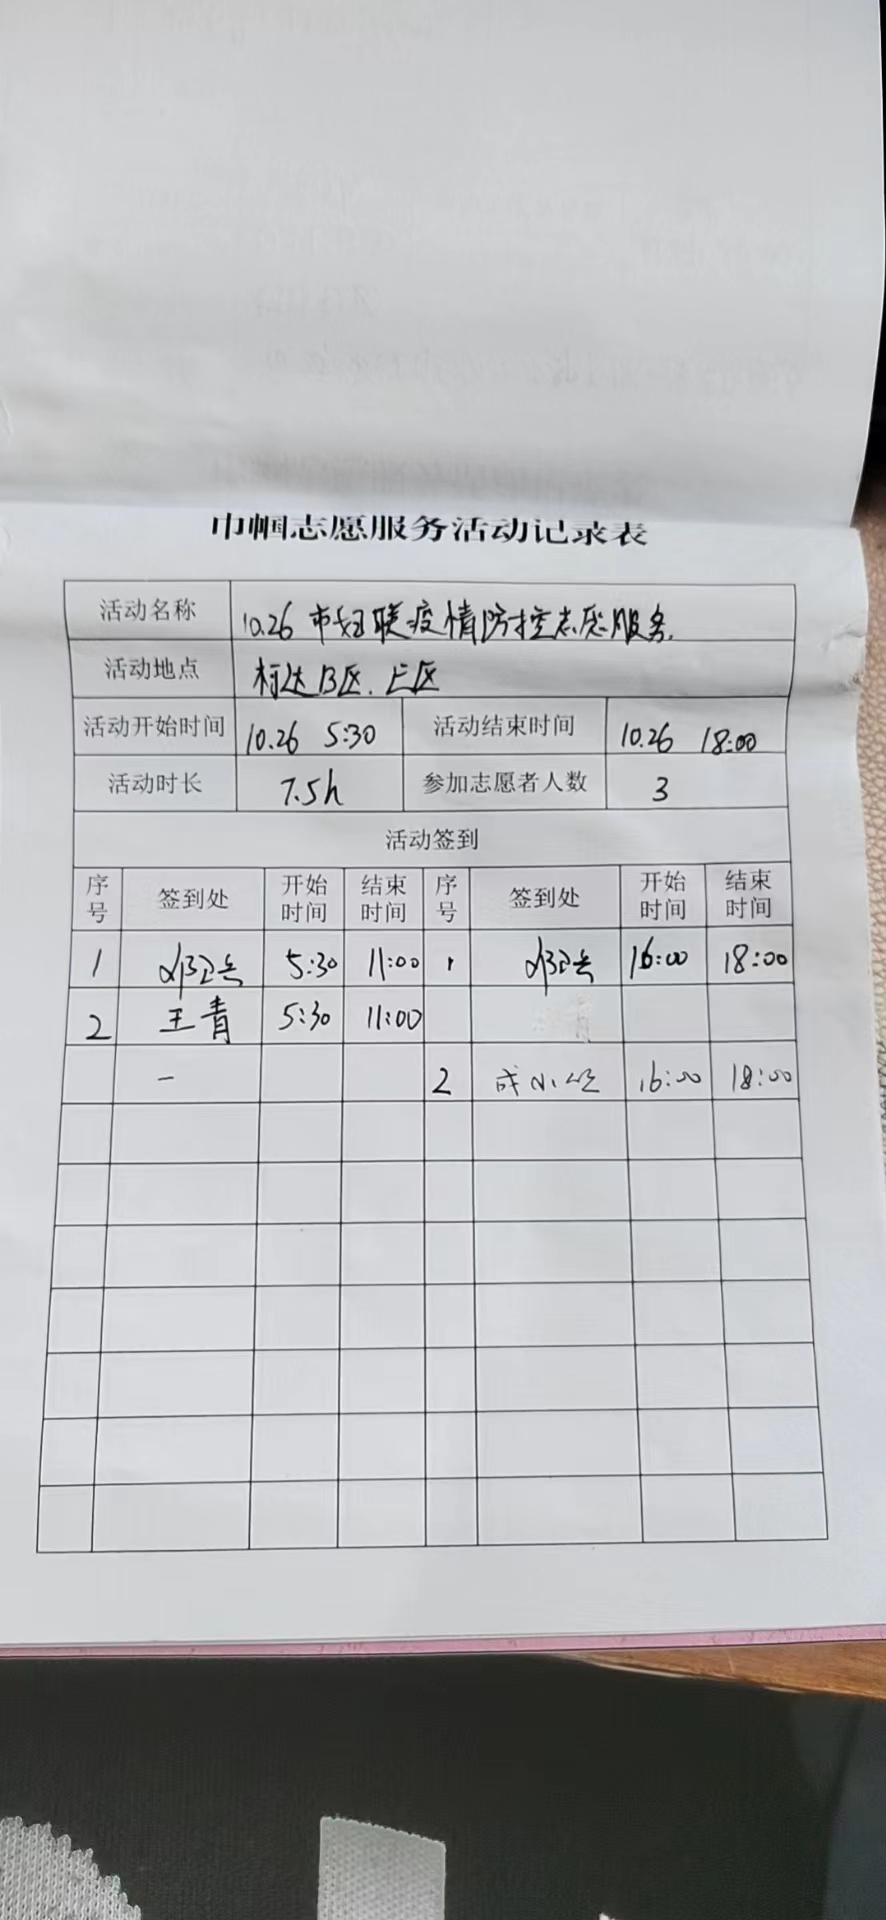 巾帼志愿服务活动记录表
活动名称 10.26 市妇联疫情防控志愿服务.
活动地点 柯达B区.E区
活动开始时间 10.26 5:30 活动结束时间 10.26 18:00
活动时长 7.5h 参加志愿者人数 3
活动签到
序号 签到处 开始时间 结束时间 序号 签到处 开始时间 结束时间
1 5:30 11:00 1 16:00 18:00
2 王青 5:30 11:00
一 2 成小 16:00 18:00